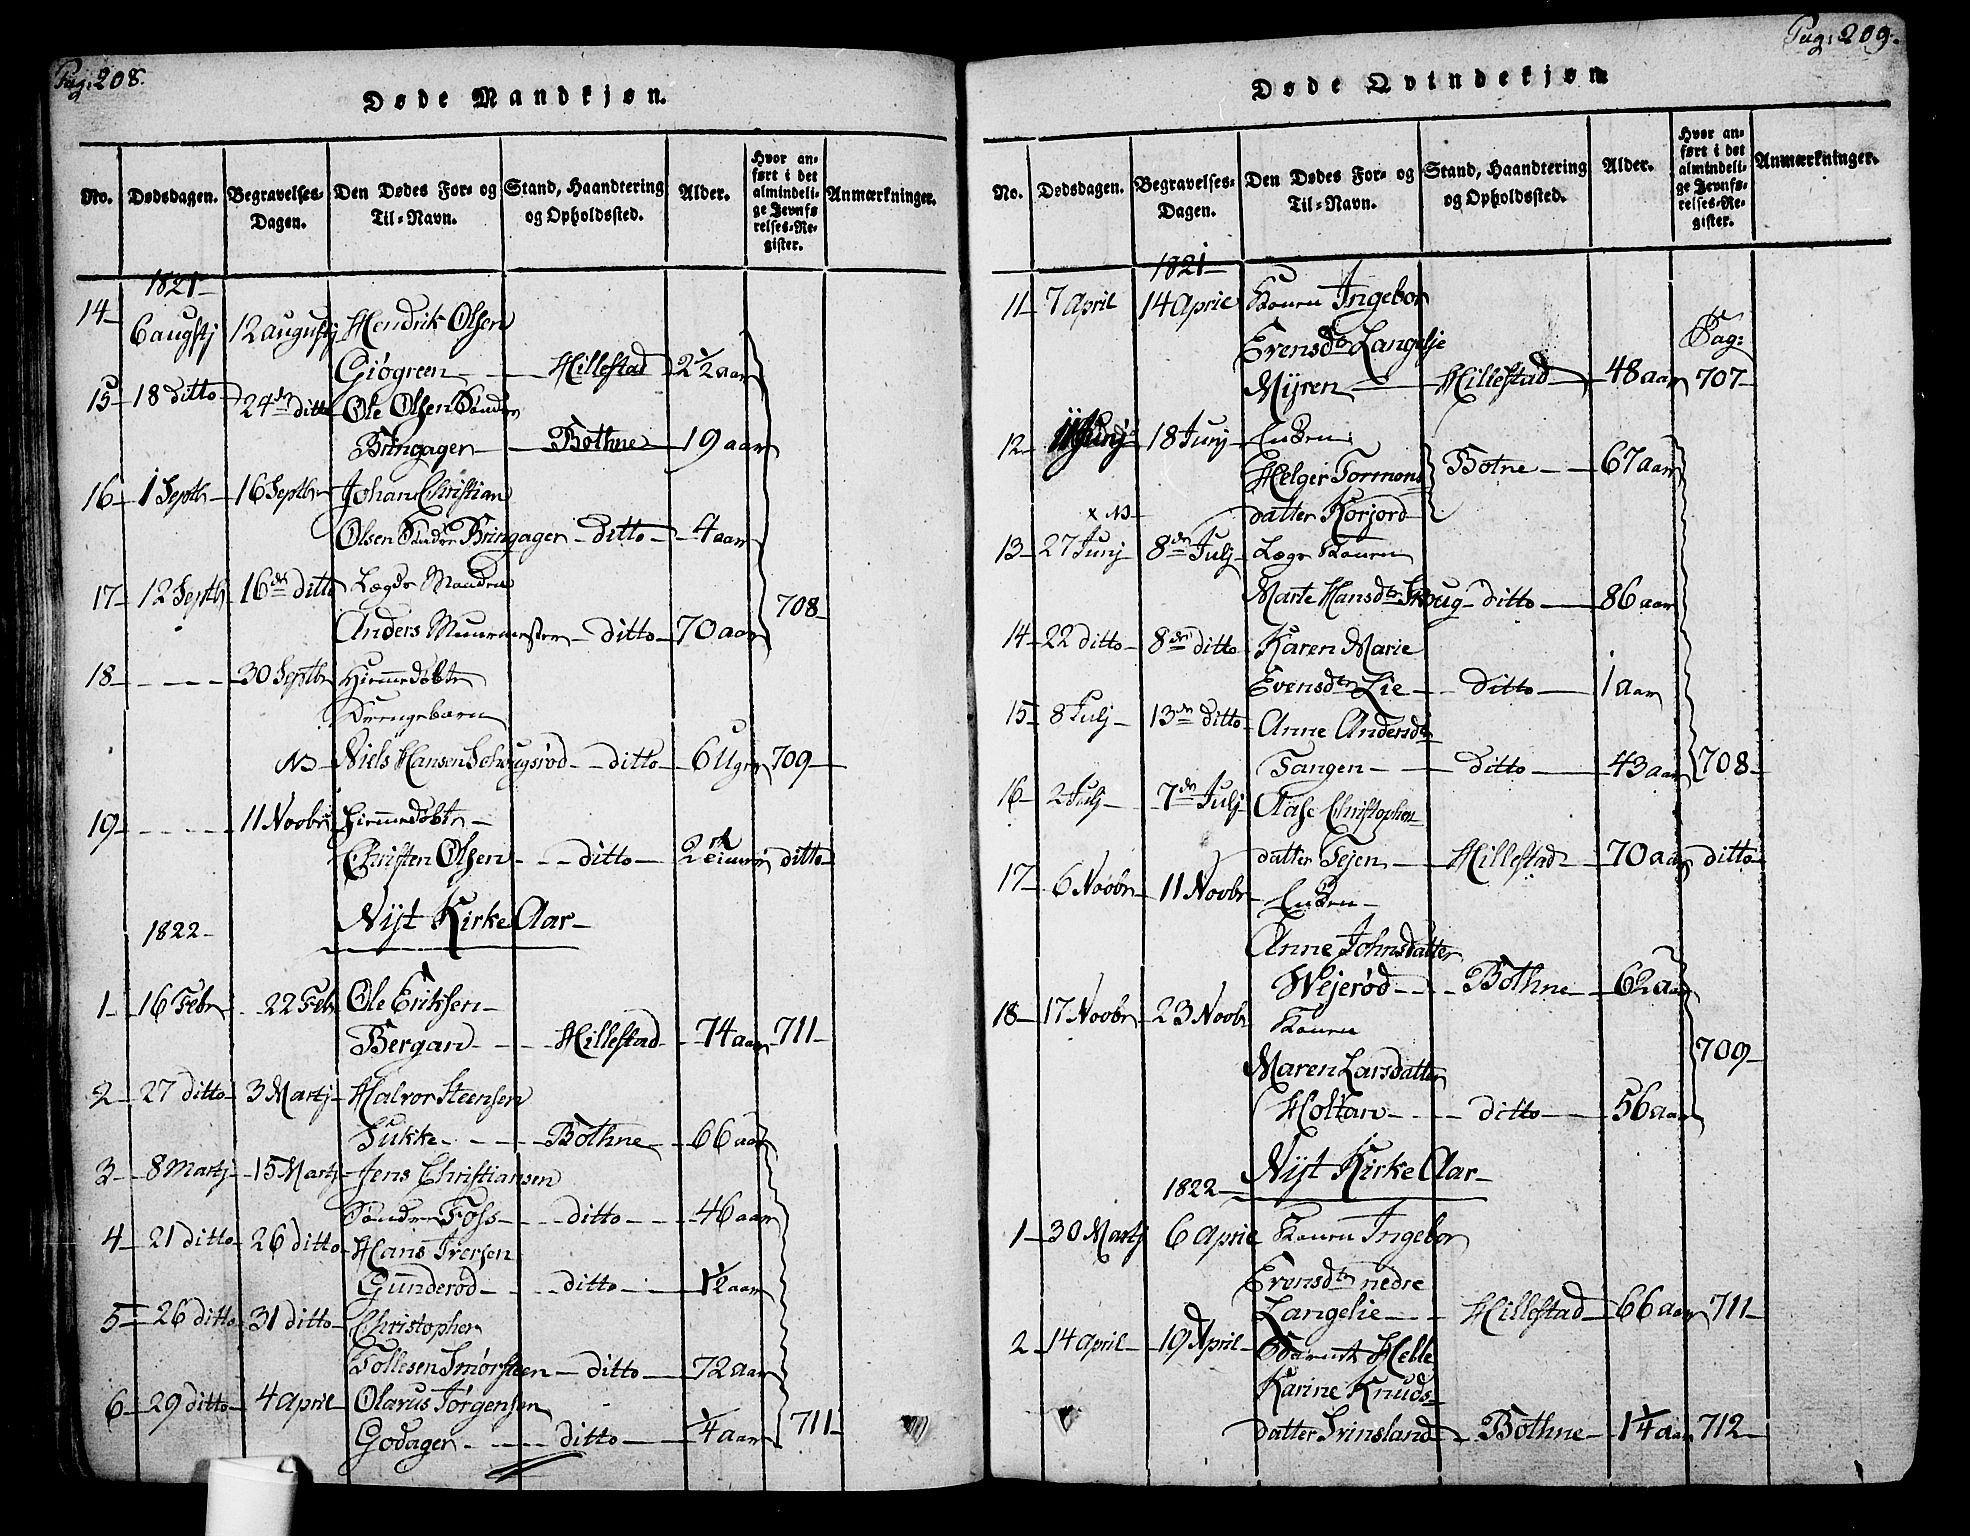 Pag: 208.
Døde Mandkjøn.
No. Dødsdagen. Begravelses-Dagen. Den Dødes For- og Til-Navn. Stand, Haandtering og Opholdssted. Alder. Hvor anført i det almindelige Jevnførelses-Register. Anmærkninger.
1821
14 6 augstj 12 augustj Hendrik Olsen
Giøgreen Hillestad 2 1/2 aar
15 18 ditto 24de ditto Ole Olsen Søndre
Bringager Bothne 19 aar
16 1 Septbr 16 Septbr Johan Christian
Olsen Søndre Bringager ditto 4 aar
17 12 Septbr 16de ditto Lægds Manden
Anders Muurmester ditto 70 aar 708
18 30 Septbr Hiemmedøbte
Drengebarn
NB Niels Hansen ditto 6 Uger 709
19 11 Novbr Hiemmedøbte
Christen Olsen ditto 2 ditto
1822 Nyt Kirke Aar
1 16 Febr 22 Febr Ole Eriksen
Bergan Hillestad 74 aar 711
2 27 ditto 3 Martj Halvor Steensen
Sukke Bothne 66 aar
3 8 Martj 15 Martj Jens Christiansen
Søndre Foss ditto 46 aar
4 21 ditto 26 ditto Hans Iversen
Gunderød ditto 1 1/2 aar
5 26 ditto 31 ditto Christopher
Tollesen Smørsteen ditto 72 aar
6 29 ditto 4 April Olarus Jørgensen
Godager ditto 1/4 aar 711
Pag: 209.
Døde Qvindekjøn
No. Dødsdagen. Begravelses-Dagen. Den Dødes For- og Til-Navn. Stand, Haandtering og Opholdssted. Alder. Hvor anført i det almindelige Jevnførelses-Register. Anmærkninger.
1821
11 7 April 14 April Konen Ingebor
Evensdtr Langelje Pag:
Myren Hillestad 48 aar 707
12 11 Junj 18 Junj Enken
Helger Tormons
datter Korjord Botne 67 aar
x NB
13 27 Junj 8de Julj Lægs Konen
Marte Hansdtr Skoug ditto 86 aar
14 22 ditto 8de ditto Karen Marie
Evensdtr Lie ditto 1 aar
15 8 Julj 13de ditto Anne Andersdtr
Tangen ditto 43 aar 708
16 2 Julj 7de Julj Aase Christophers
datter Tejen Hillestad 70 aar ditto
17 6 Novbr 11 Novbr Enken
Anne Johnsdatter
Wejerød Bothne 62 aar
18 17 Novbr 23 Novbr Konen
709
Maren Larsdatter
Holtan ditto 56 aar
Nyt Kirke Aar
1822
1 30 Martj 6 April Konen Ingebor
Evensdtr nedre
Langelie Hillestad 66 aar 711
2 14 april 19 April Helle
Karine Knuds
datter Srinsland Bothne 1 1/4 aar 712